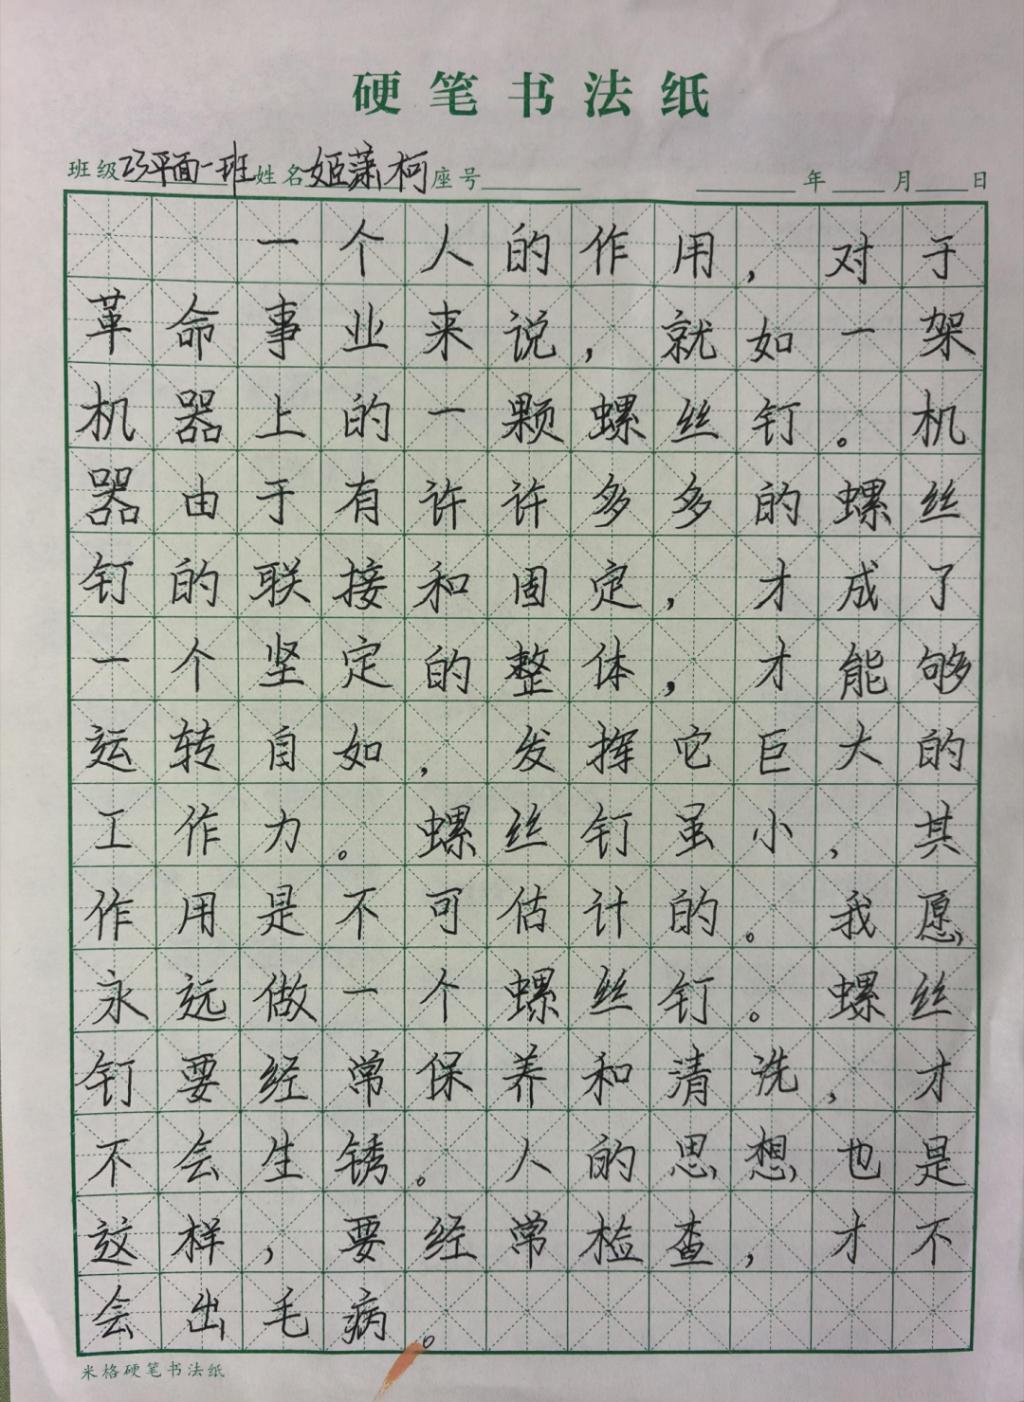 硬笔书法纸
班级23平面一班姓名姬萧柯座号 年 月 日
一个人的作用，对于
革命事业来说，就如一架
机器上的一颗螺丝钉。机
器由于有许许多多的螺丝
钉的联接和固定，才成了
一个坚定的整体，才能够
运转自如，发挥它巨大的
工作力。螺丝钉虽小，其
作用是不可估计的。我愿
永远做一个螺丝钉。螺丝
钉要经常保养和清洗，才
不会生锈。人的思想也是
这样，要经常检查，才不
会出毛病。
米格硬笔书法纸